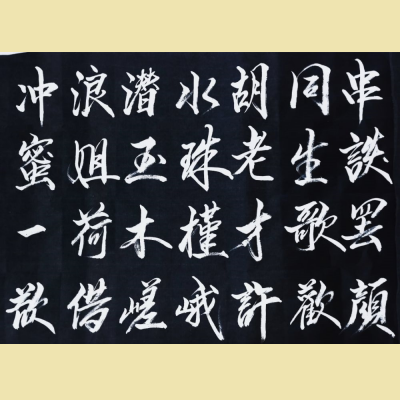 串談罷顏
同生歌歡
胡老才許
水珠槿峨
潛玉木嵯
浪姐荷借
冲蜜一